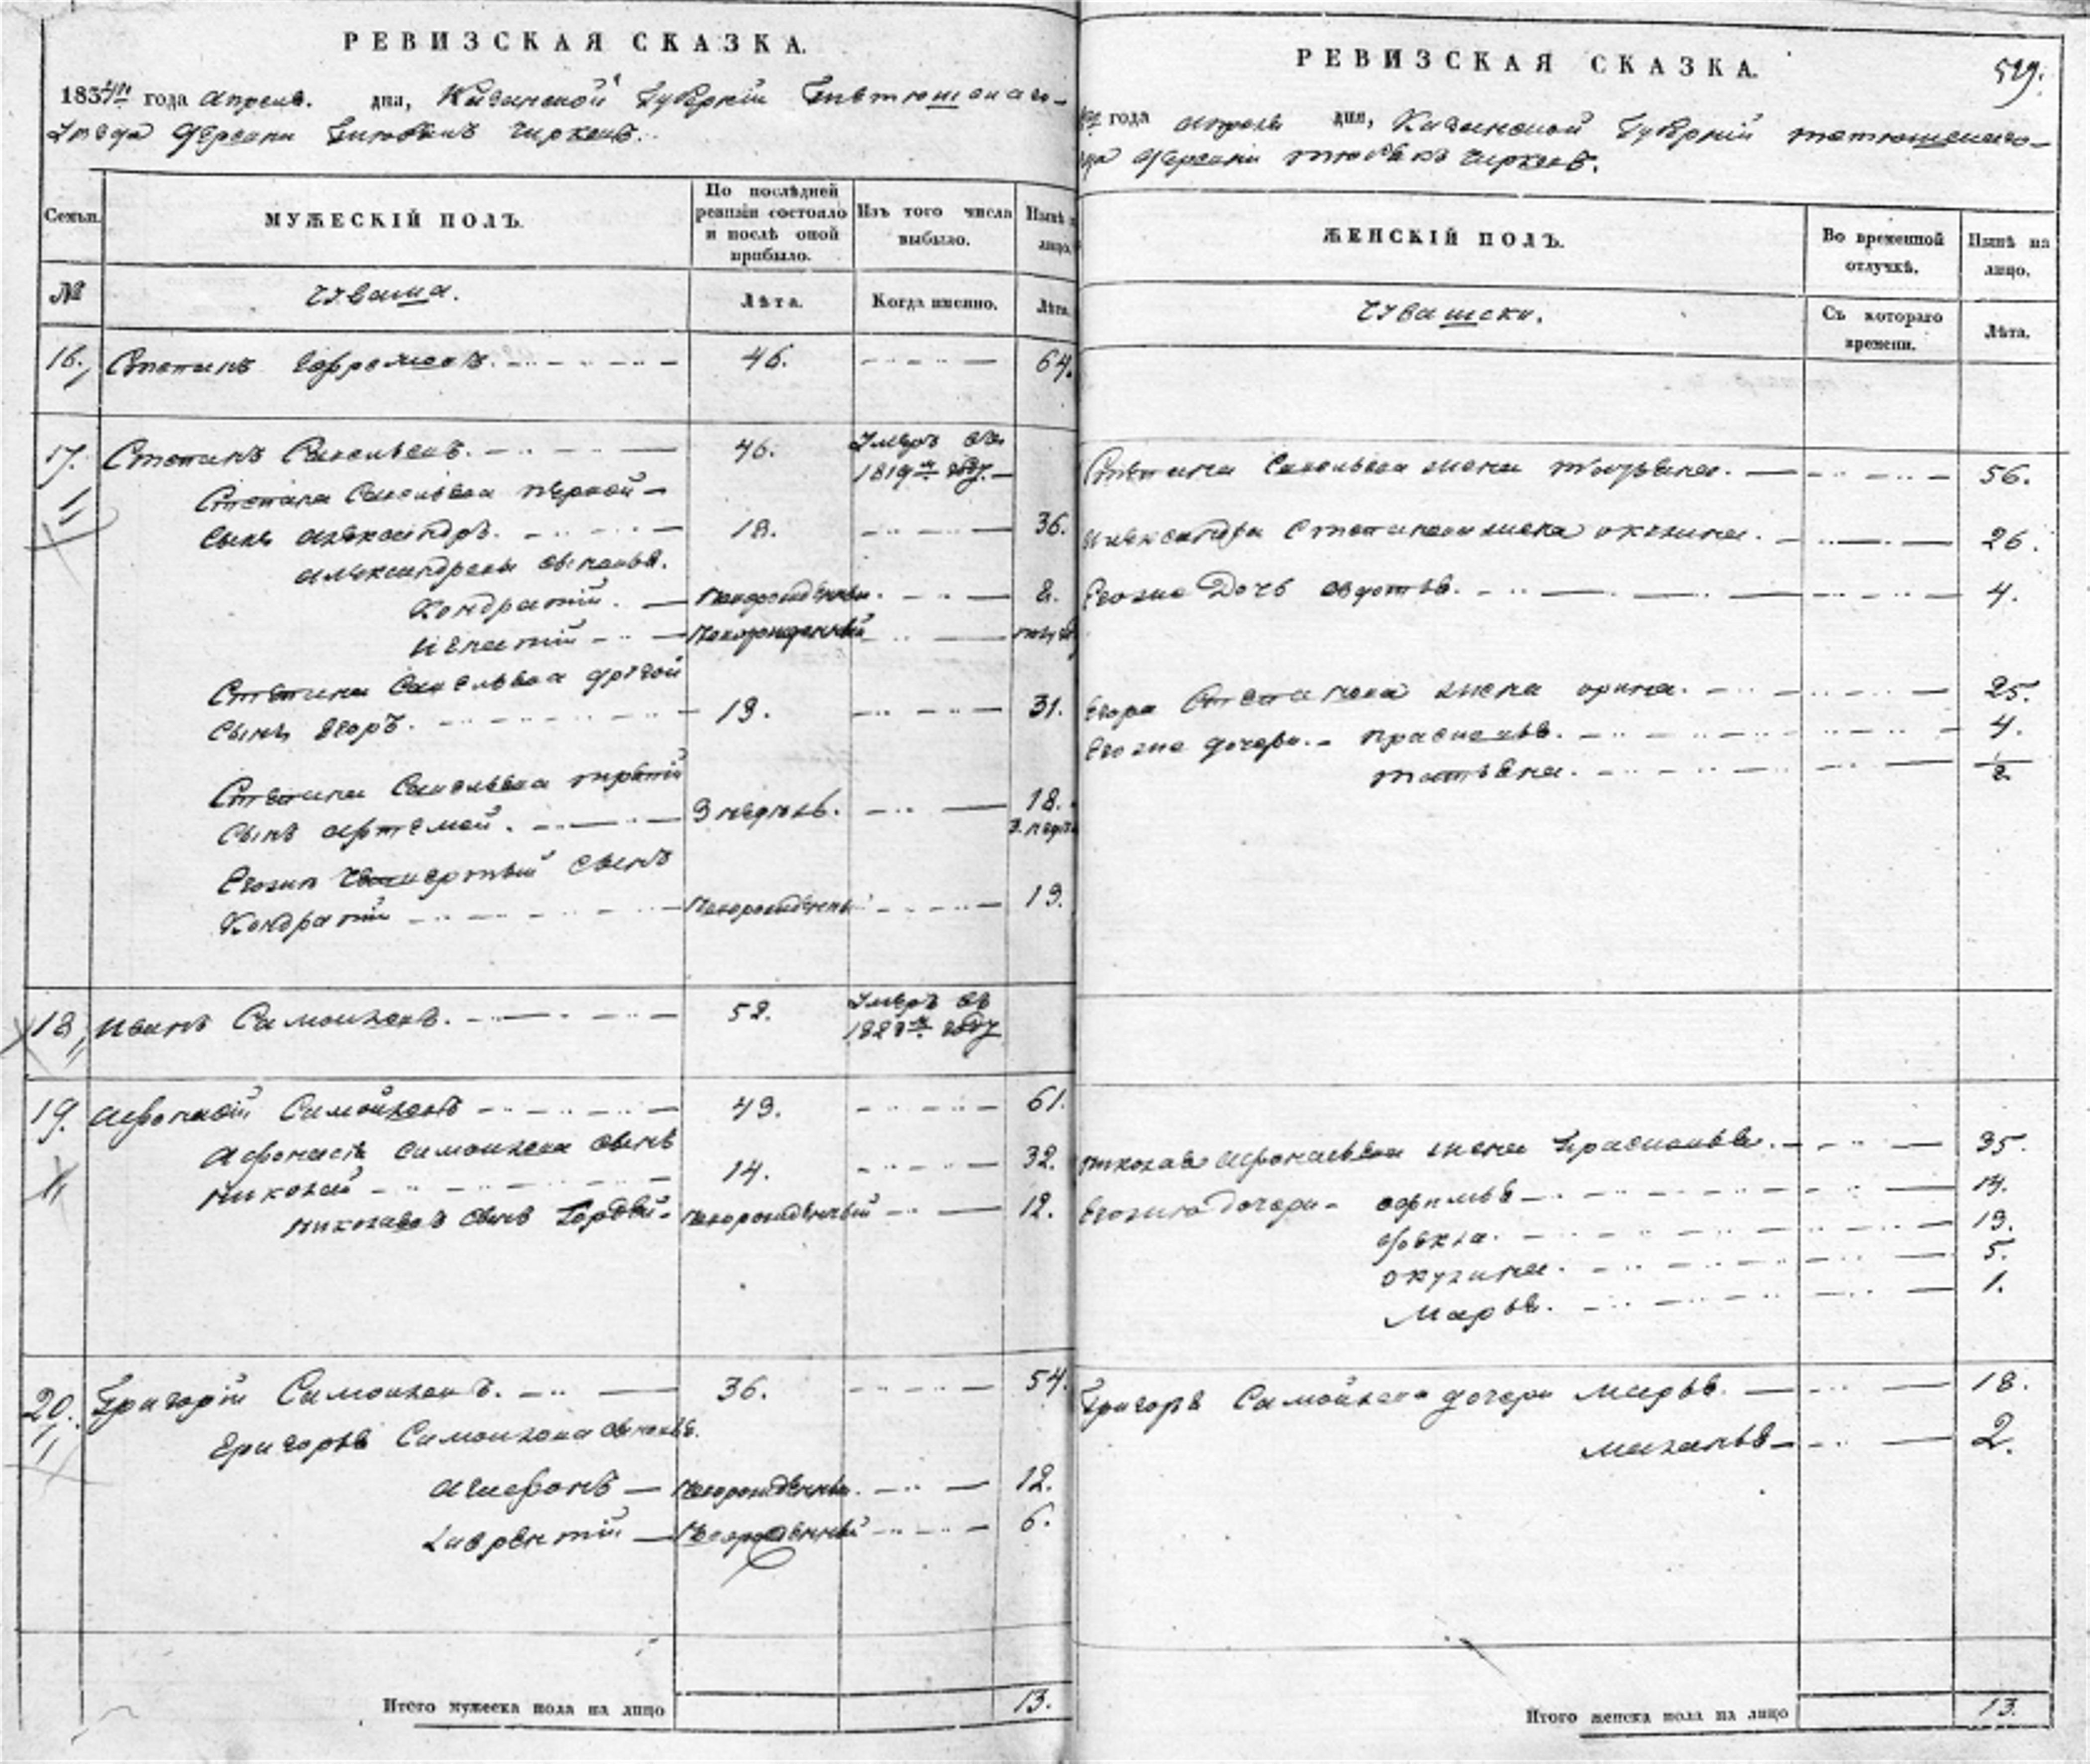 РЕВИЗСКАЯ СКАЗКА.
1834 года апреля дня, Казанской Губернии Тетюшскаго
Уезда Деревни Чиркенъ.
Семьи. МУЖЕСКІЙ ПОЛЪ. По послѣдней ревизіи состояло и послѣ оной прибыло. Изъ того числа выбыло. Нынѣ на лицо.
№ Чуваша. Лѣта. Когда именно. Лѣта.
16. Степанъ Ефремовъ. 46. 64.
17. Степанъ Савельевъ. 46. Умеръ въ 1819м году.
Степана Савельева первой
сынъ Александръ. 18. 36.
Александровы сыновья.
Кондратий. Новорожденный. 8.
Игнатий Новорожденный
Степана Савельева другой
сынъ Егоръ. 13. 31.
Степана Савельева третий
сынъ Артемей. 3 недель. 18.
3. неде
Егожъ четвертый сынъ
Кондратий Новорожденный 13.
18. Иванъ Самойловъ. 52. Умеръ въ 1828м году
19. Афонасий Самойловъ 43. 61.
Афонасья Самойлова сынъ
Николай 14. 32.
Николаевъ сынъ Гордей Новорожденный 12.
20. Григорий Самойловъ. 36. 54.
Григорья Самойлова сыновья.
Агафонъ Новорожденный. 12.
Лаврентий Новорожденный 6.
Итого мужеска пола на лицо 13.
РЕВИЗСКАЯ СКАЗКА.
529.
года апреля дня, Казанской Губернии Тетюшскаго
Деревни Чиркенъ.
ЖЕНСКІЙ ПОЛЪ. Во временной отлучкѣ. Нынѣ на лицо.
Чувашски. Съ котораго времени. Лѣта.
Степана Савельева жена 56.
Александра Степанова жена Окулина. 26.
Егоже дочь Авдотья. 4.
Егора Степанова жена Орина. 25.
Егоже дочери Прасковья. 4.
Татьяна.
Николая Афонасьева жена Прасковья. 35.
Егожъ дочери Офимья 14.
Фекла. 13.
Окулина. 5.
Марья. 1.
Григорья Самойлова дочери Марья. 18.
Маланья 2.
Итого женска пола на лицо 13.